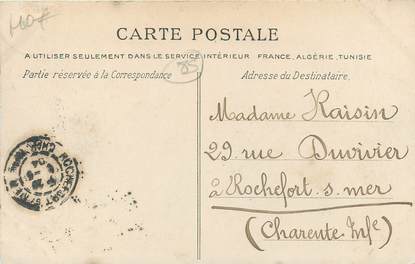 CARTE POSTALE
A UTILISER SEULEMENT DANS LE SERVICE INTÉRIEUR FRANCE, ALGÉRIE, TUNISIE
Partie réservée à la Correspondance
Adresse du Destinataire.
85
Madame Raisin
29 rue Duvivier
à Rochefort s. mer
(Charente Infe)
ROCHEFORT